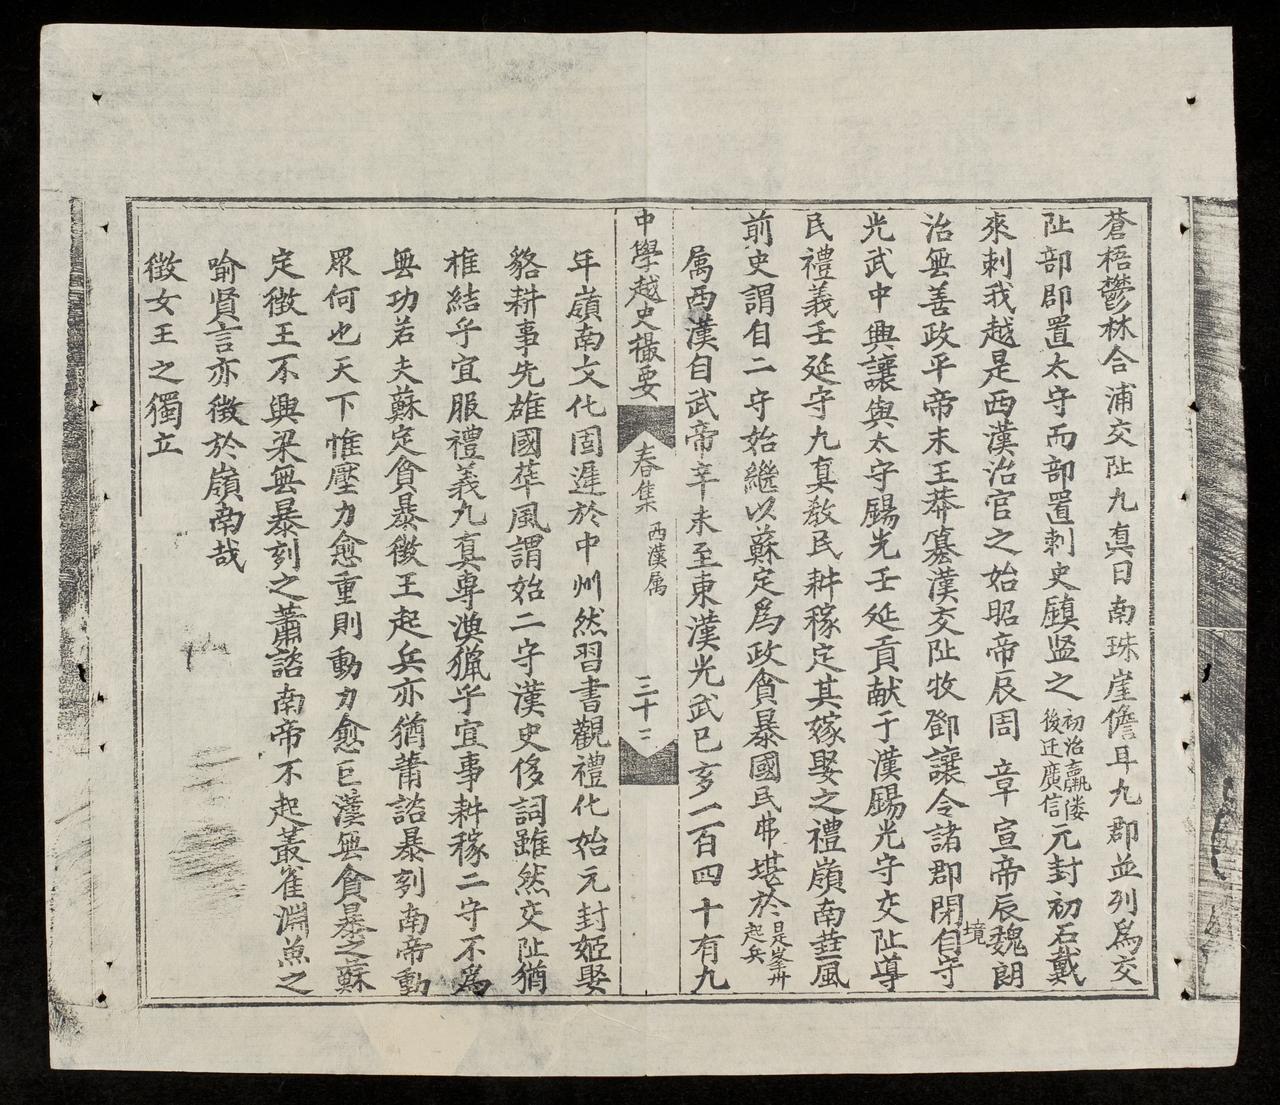 蒼梧鬱林合浦交阯九真日南珠崖儋耳九郡並列爲交
阯部郡置太守而部置刺史顧监之初治羸𨻻後迁廣信元封初石戴
來刺我越是西漢治官之始昭帝辰周章宣帝辰魏朗
治無善政平帝末王莽篡漢交阯牧鄧讓令諸郡閉境自守
光武中興讓與太守錫光壬延貢献于漢錫光守交阯導
民禮義壬延守九真敎民耕稼定其嫁娶之禮嶺南華風
前史謂自二守始繼以蘇定爲政貪暴國民弗堪於是峯州起兵
属西漢自武帝辛未至東漢光武已亥一百四十有九
中學越史撮要
春集
西漢属
三十二
年嶺南文化固遲於中州然習書觀禮化始元封姬娶
貉耕事先雄國華風謂始二守漢史侈詞雖然交阯猶
椎結乎宜服禮義九真專漁獵乎宜事耕稼二守不爲
無功若夫蘇定貪暴徵王起兵亦猶莆諮暴刻南帝動
眾何也天下惟壓力愈重則動力愈巨漢無貪暴之蘇
定徵王不興梁無暴刻之蕭諮南帝不起叢雀淵魚之
喻賢言亦徵於嶺南哉
徵女王之獨立